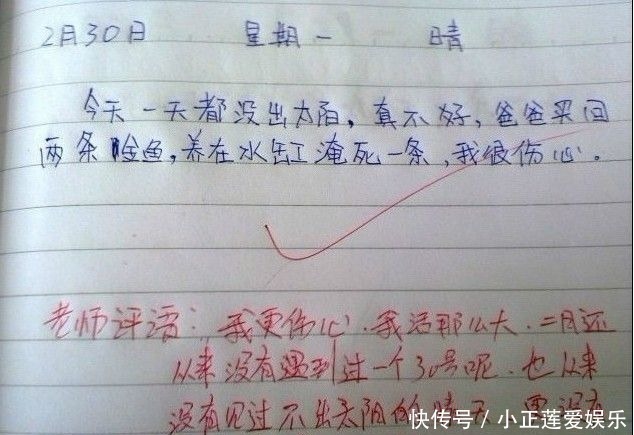 2月30日 星期一 晴
今天一天都没出太阳,真不好,爸爸买回
两条金鱼,养在水缸淹死一条,我很伤心。
老师评语:我更伤心.我活那么大.二月还
从来没有遇到过一个30号呢.也从来
没有见过不出太阳的晴天
快传号/小正莲爱娱乐